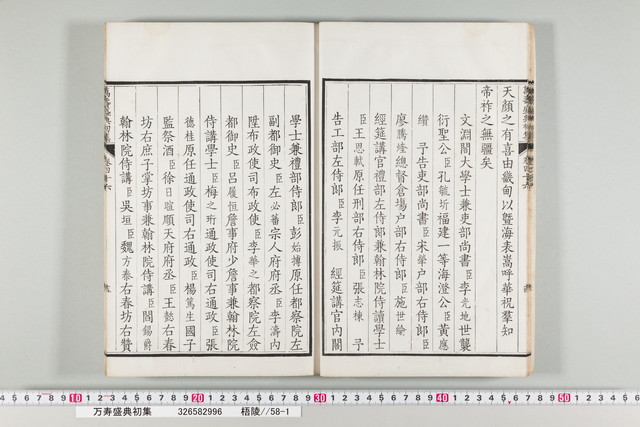 天顔之有喜由畿甸以曁海表嵩呼華祝羣知
帝祚之無疆矣
文淵閣大學士兼吏部尚書臣李光地世襲
衍聖公臣孔毓圻福建一等海澄公臣黃應
纘 予告吏部尚書臣宋犖户部右侍郎臣
廖騰煃總督倉場户部右侍郎臣施世綸
經筵講官禮部左侍郎兼翰林院侍讀學士
臣王思軾原任刑部右侍郎臣張志棟 予
告工部左侍郎臣李元振 經筵講官内閣
學士兼禮部侍郎臣彭始摶原任都察院左
副都御史臣左必蕃宗人府府丞臣李濤内
陞布政使司布政使臣李華之都察院左僉
都御史臣吕履恒詹事府少詹事兼翰林院
侍講學士臣梅之珩通政使司右通政臣張
德桂原任通政使司右通政臣楊篤生國子
監祭酒臣徐日暄順天府府丞臣王懿右春
坊右庶子掌坊事兼翰林院侍講臣閻錫爵
翰林院侍講臣吳垣臣魏方泰右春坊右贊
万寿盛典初集 326582996 梧陵//58-1
10 20 30 40 50